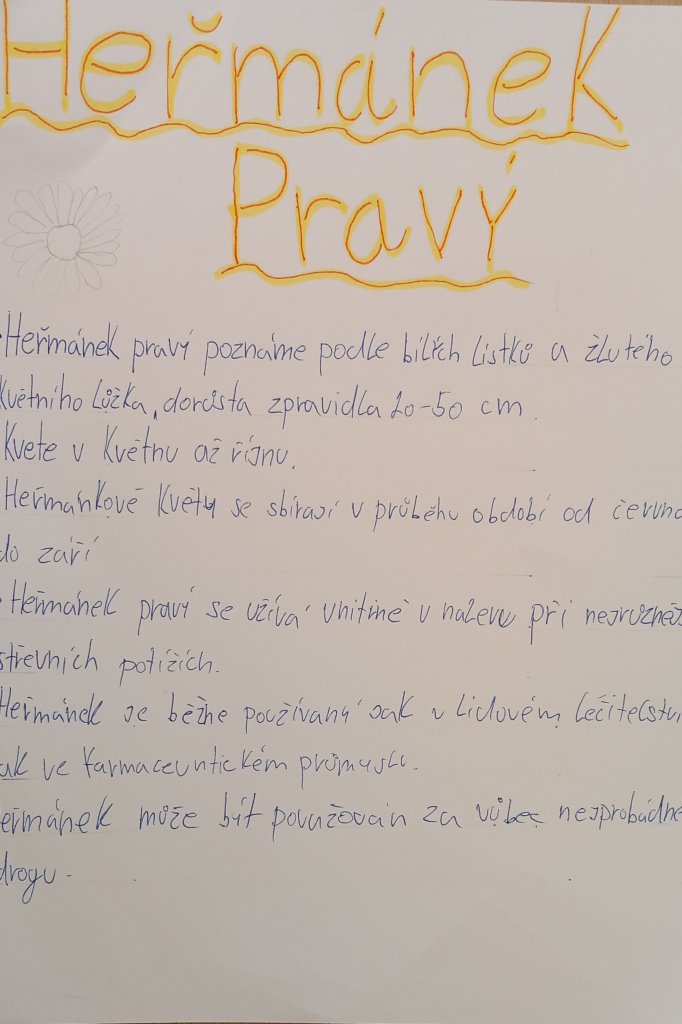 Heřmánek
Pravý
Heřmánek pravý poznáme podle bílích lístků a žlutého
květního lůžka, dorůsta zpravidla 20-50 cm.
Kvete v Květnu až říjnu.
Heřmánkové Květy se sbírají v průběhu období od června
do září
Heřmánek pravý se užívá vnitřně v nálevu při
střevních potížích.
Heřmánek je běžně používaný jak v lidovém léčitelství
ak ve farmaceutickém průmyslu.
eřmánek může být považován za vůbec
drogu.